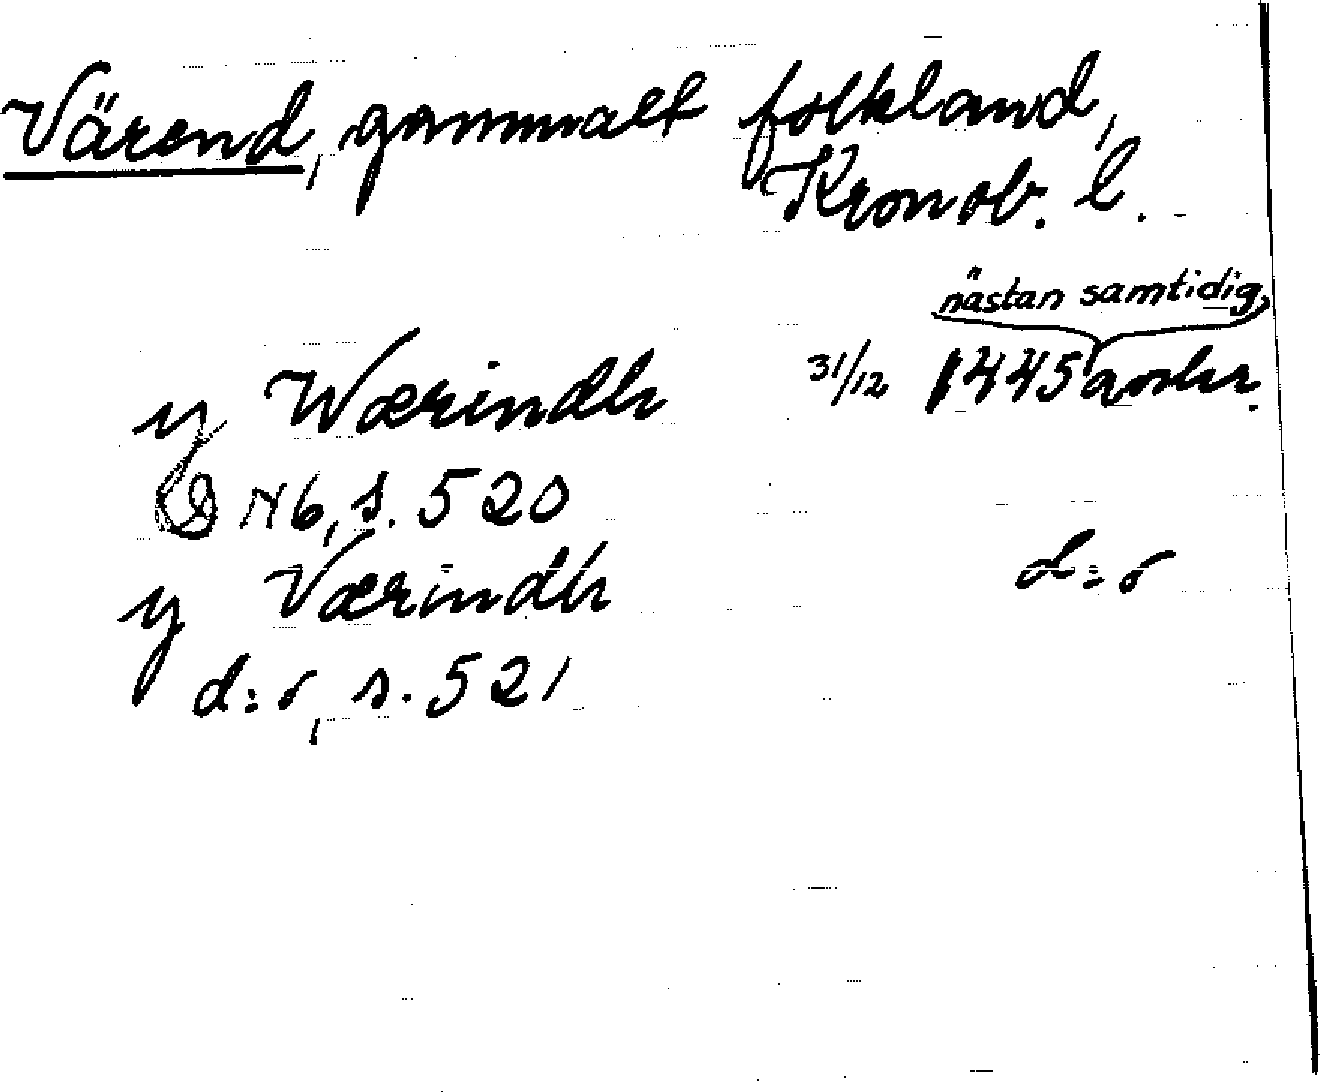 Värend, gammalt folkland,
Kronob. l.
nästan samtidig
y Wærindh 31/12 1445 avskr.
DN 6, s. 520
y Værindh d:o
d:o, s. 521